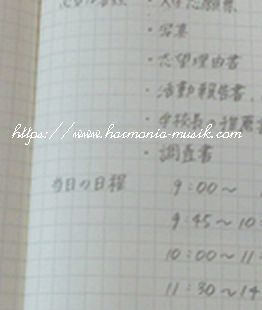 ・写真
・志望理由書
・活動報告書
https://www.harmonia-musik.com
・学校長の推薦書
・調査書
当日の日程 9:00～
9:45～10:
10:00～11
11:30～14